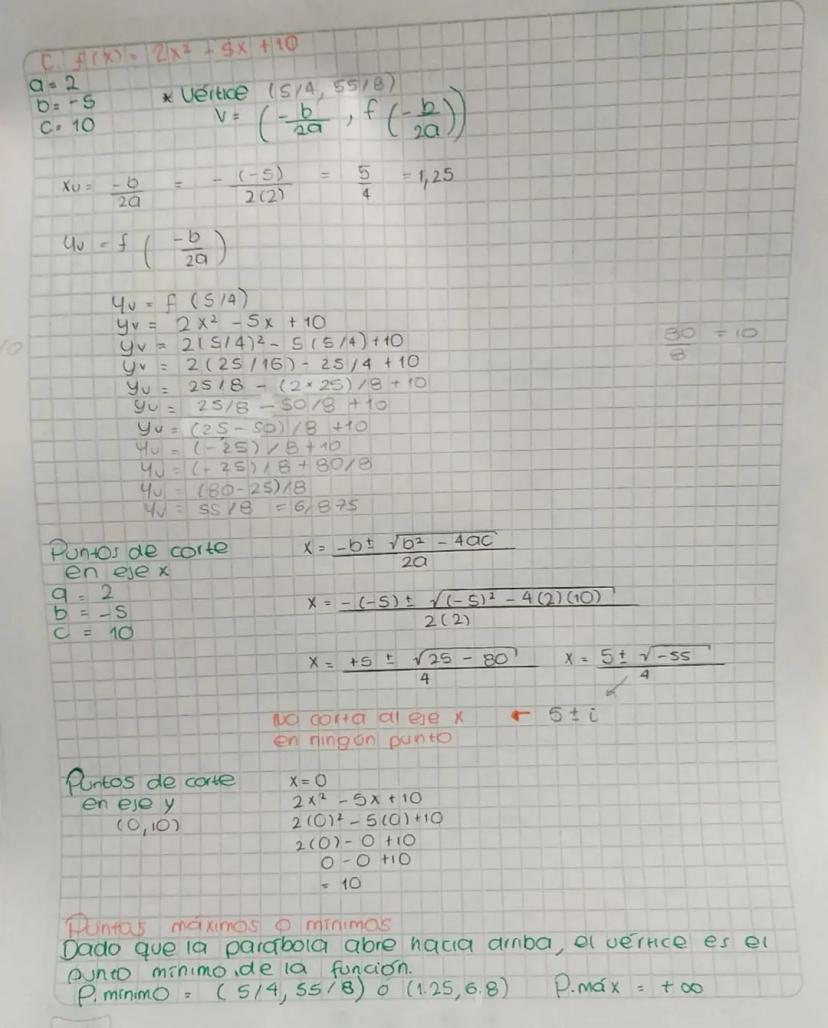 C. f(x) = 2x² - 5x + 10
a = 2
b = -5
c = 10
* Vértice (5/4, 55/8)
V = (-b/2a, f(-b/2a))
xv = -b/2a = - (-5)/2(2) = 5/4 = 1,25
yv = f(-b/2a)
yv = f (5/4)
yv = 2x² - 5x + 10
yv = 2(5/4)² - 5(5/4) + 10
yv = 2(25/16) - 25/4 + 10
yv = 25/8 - (2×25)/8 + 10
yv = 25/8 - 50/8 + 10
yv = (25 - 50)/8 + 10
yv = (-25)/8 + 10
yv = (-25)/8 + 80/8
yv = (80-25)/8
yv = 55/8 = 6,875
80/8 = 10
Puntos de corte
en eje x
a = 2
b = -5
c = 10
x = -b ± √b² - 4ac / 2a
x = -(-5) ± √(-5)² - 4(2)(10) / 2(2)
x = +5 ± √25 - 80 / 4 x = 5 ± √-55 / 4
No corta al eje x ← 5 ± i
en ningún punto
Puntos de corte
en eje y
(0,10)
x = 0
2x² - 5x + 10
2(0)² - 5(0) + 10
2(0) - 0 + 10
0 - 0 + 10
= 10
Puntas máximos o mínimos
Dado que la parábola abre hacia arriba, el vértice es el
punto mínimo de la función.
P. mínimo = (5/4, 55/8) ó (1.25, 6.8) P. máx = +∞